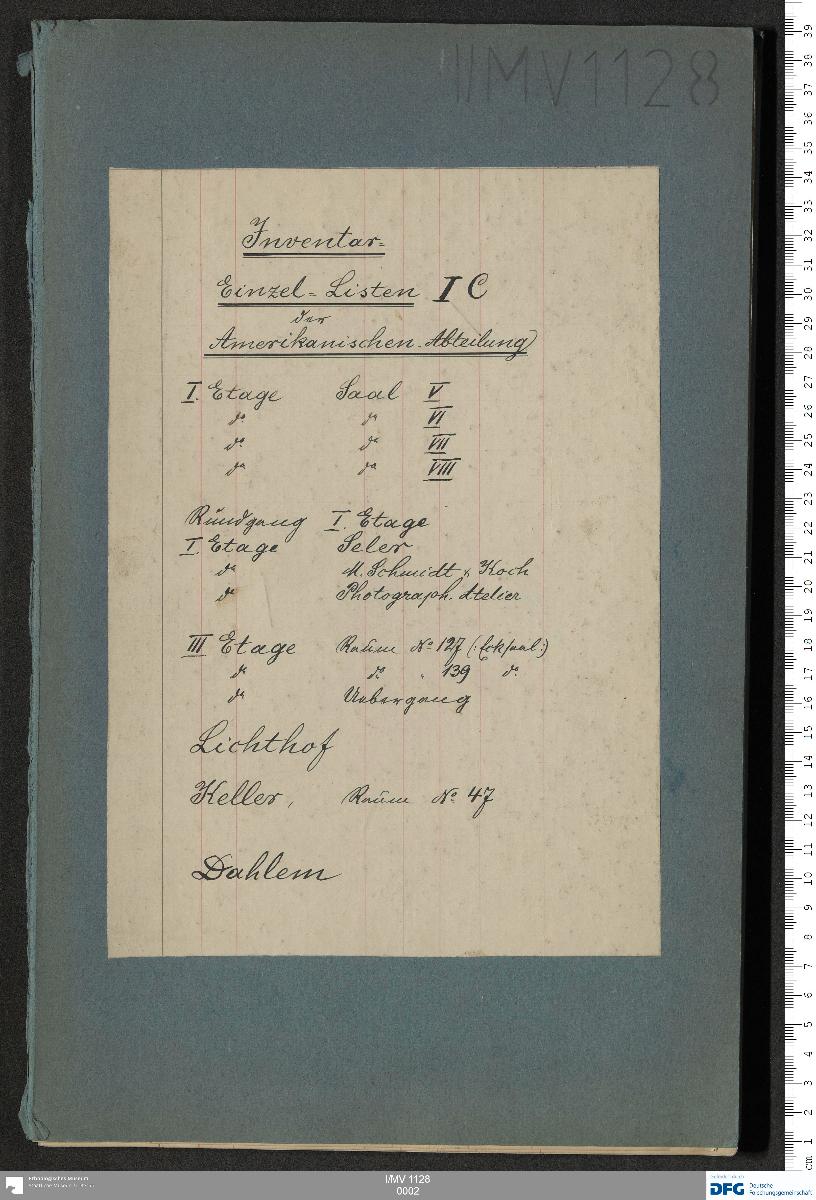 I/MV 1128
Inventar-
Einzel-Listen I C
der
Amerikanischen-Abteilung
I. Etage Saal V
do do VI
do do VII
do do VIII
Rundgang I. Etage
I. Etage Seler
do M. Schmidt & Koch
do Photograph. Atelier
III Etage Raum No 127 (:Ecksaal:)
do do " 139 do
do Uebergang
Lichthof
Keller, Raum No 47
Dahlem
39
38
37
36
35
34
33
32
31
30
29
28
27
26
25
24
23
22
21
20
19
18
17
16
15
14
13
12
11
10
9
8
7
6
5
4
3
2
1
cm
Ethnologisches Museum
I/MV 1128
0002
DFG Deutsche
Forschungsgemeinschaft